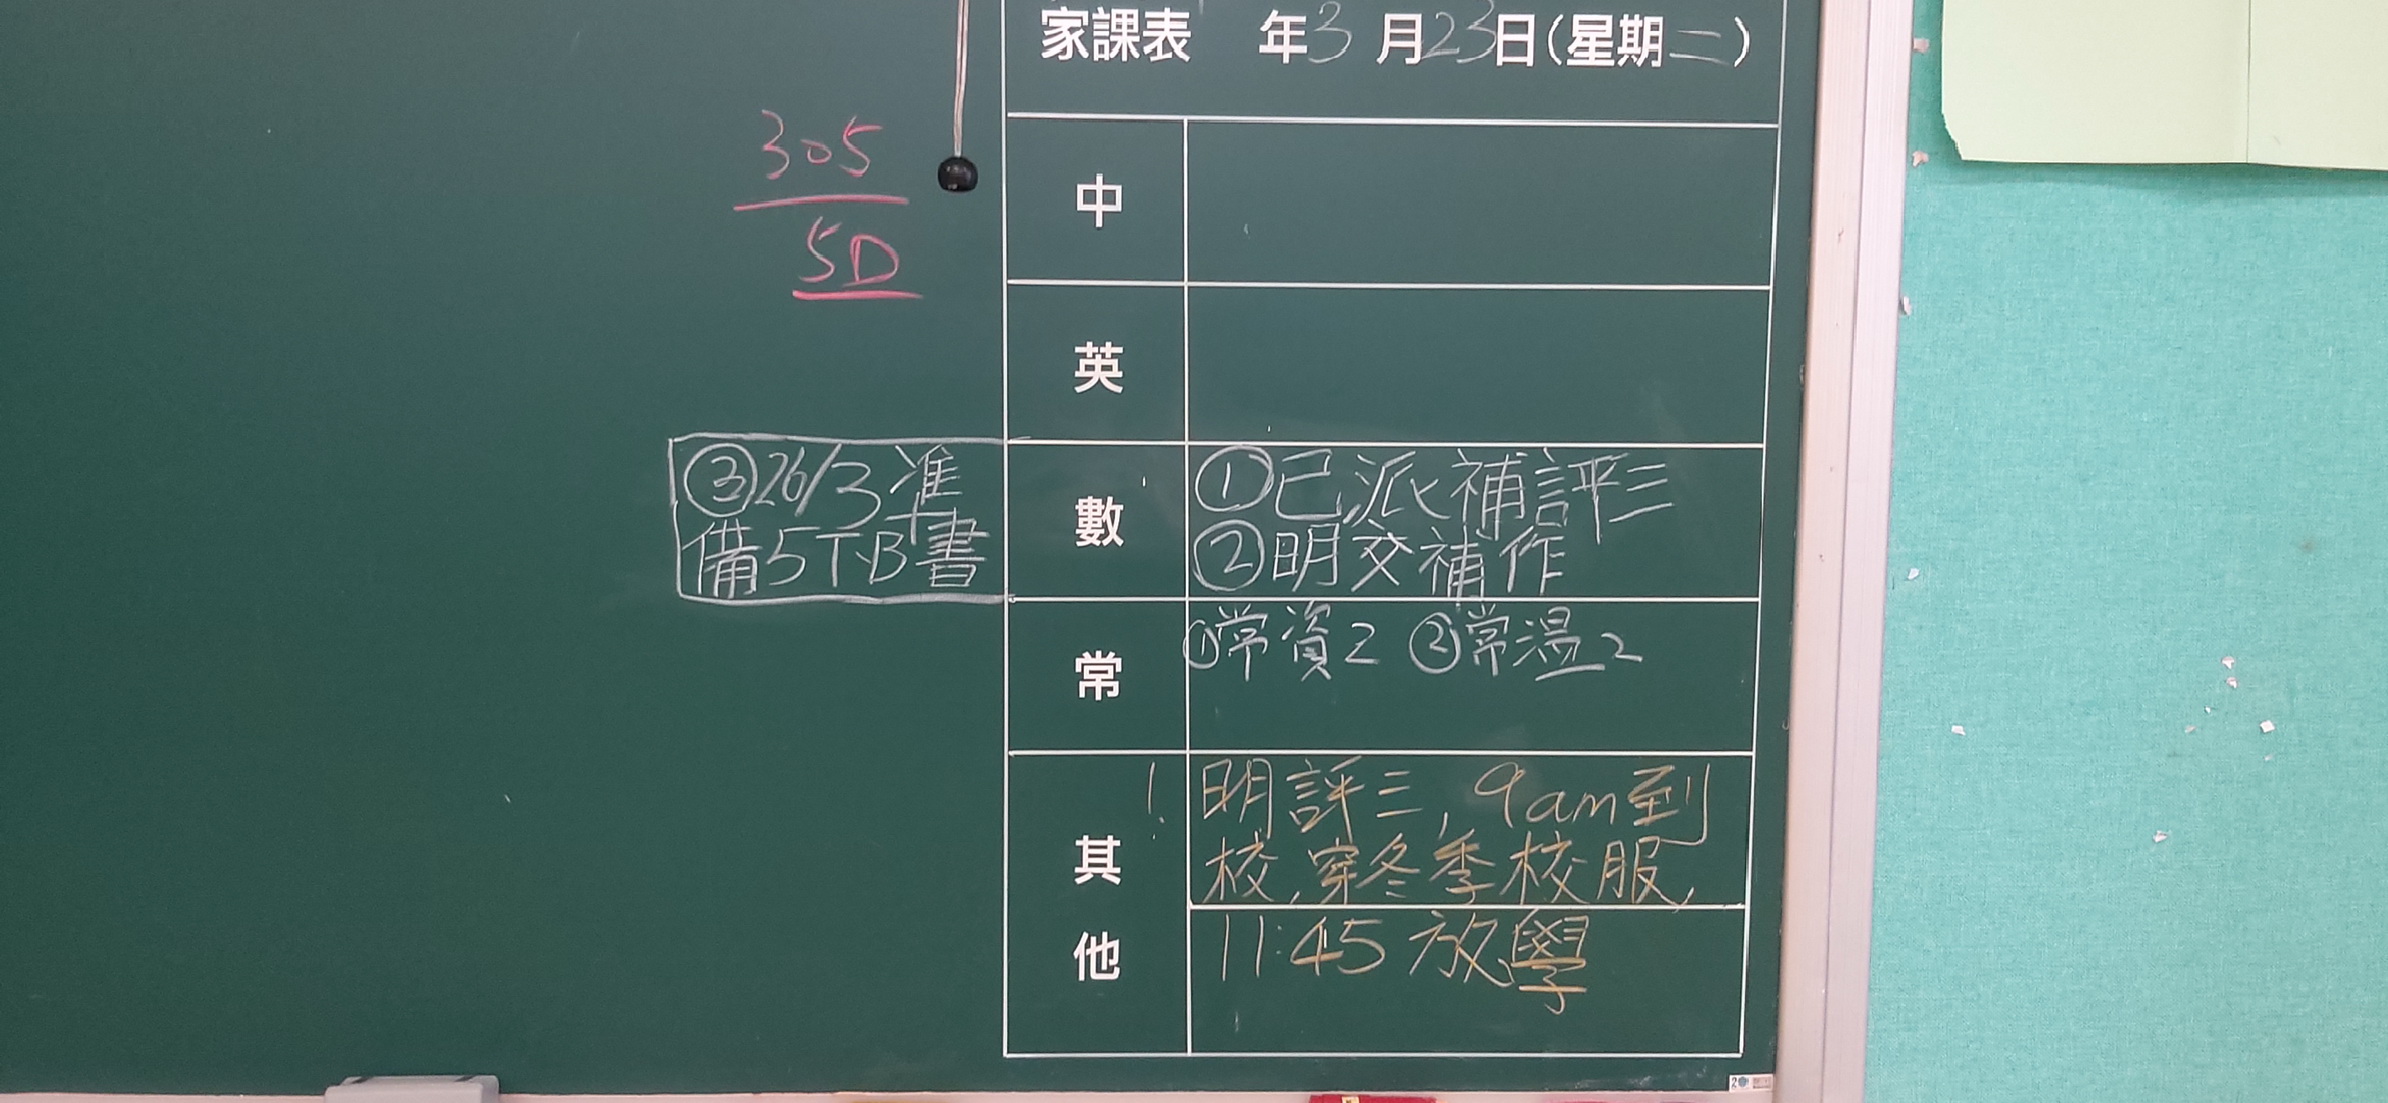 家課表 年3月23日(星期二)
305
5D
中
英
數
①已派補評三
②明交補作
③26/3准
備5T.B書
常
①常資2 ②常温2
其他
! 明評三, 9am到
校,穿冬季校服,
11:45放學